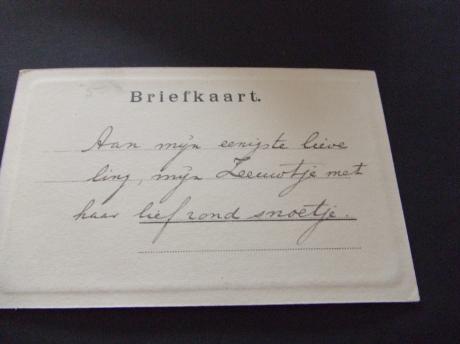 Briefkaart.
Aan mijn eenigste lieve
ling, mijn Zeeuwtje met
haar lief rond snoetje.